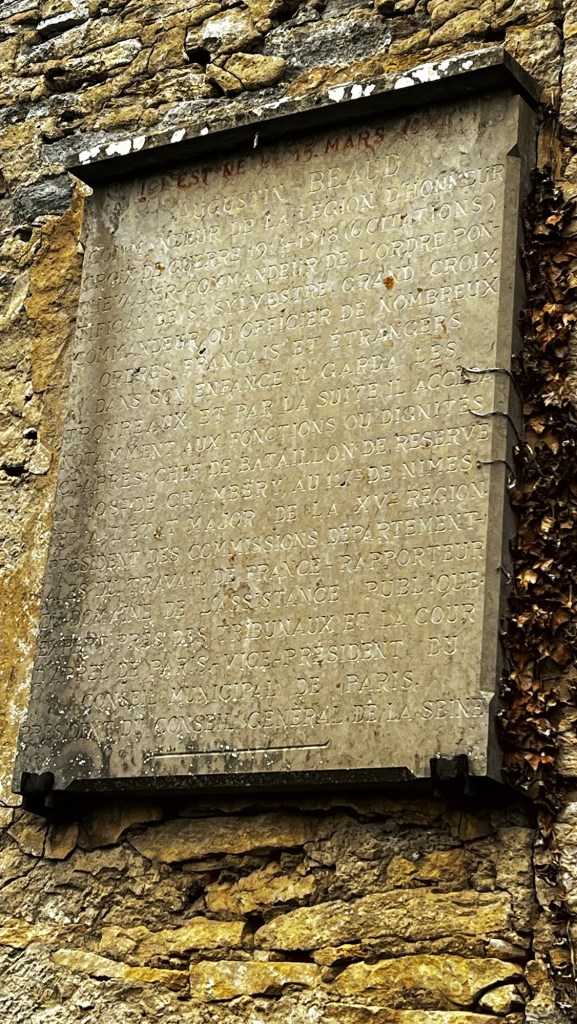 ICI EST NÉ LE 15 MARS
AUGUSTIN BEAUD
COMMANDEUR DE LA LÉGION D'HONNEUR
CROIX DE GUERRE 1914-1918 (6 CITATIONS)
CHEVALIER COMMANDEUR DE L'ORDRE PON-
TIFICAL DE St SYLVESTRE GRAND CROIX
COMMANDEUR OU OFFICIER DE NOMBREUX
ORDRES FRANÇAIS ET ÉTRANGERS
DANS SON ENFANCE IL GARDA LES
TROUPEAUX ET PAR LA SUITE IL ACCÉDA
NOTAMMENT AUX FONCTIONS OU DIGNITÉS
CI-APRÈS: CHEF DE BATAILLON DE RESERVE
DE CHAMBÉRY AU DE NIMES-
MAJOR DE LA XVe RÉGION
PRÉSIDENT DES COMMISSIONS DÉPARTEMENT-
DU TRAVAIL DE FRANCE-RAPPORTEUR
DOMAINE DE L'ASSISTANCE PUBLIQUE
EXPERT PRÈS DES TRIBUNAUX ET LA COUR
D'APPEL DE PARIS-VICE-PRÉSIDENT DU
CONSEIL MUNICIPAL DE PARIS.
PRÉSIDENT DU CONSEIL GÉNÉRAL DE LA SEINE